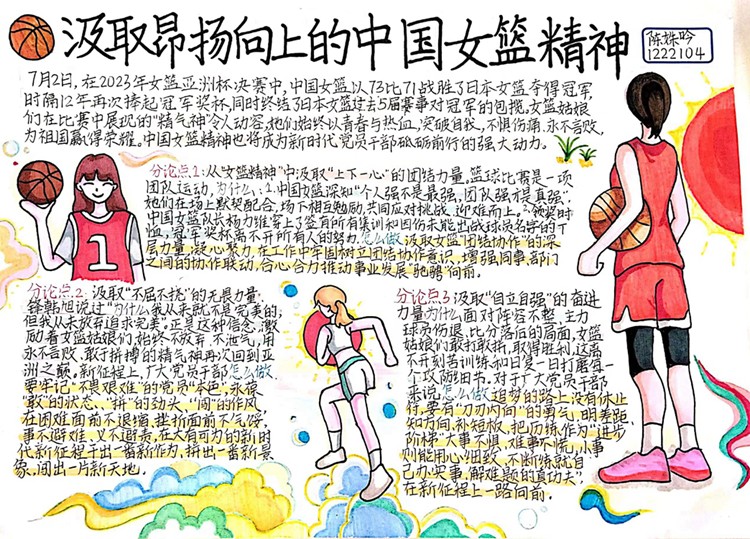 汲取昂扬向上的中国女篮精神
陈姝吟
1222104
7月2日,在2023年女篮亚洲杯决赛中,中国女篮以73比71战胜了日本女篮夺得冠军
时隔12年再次捧起冠军奖杯,同时终结了日本女篮过去5届赛事对冠军的包揽,女篮姑娘
们在比赛中展现的“精气神”令人动容,她们始终以青春与热血,突破自我,不惧伤痛,永不言败,
为祖国赢得荣耀。中国女篮精神也将成为新时代党员干部砥砺前行的强大动力。
分论点1:从“女篮精神”中汲取“上下一心”的团结力量,篮球比赛是一项
团队运动,为什么:1.中国女篮深知“个人强不是最强,团队强才是真强”
她们在场上默契配合,场下相互勉励,共同应对挑战,迎难而上。“领奖时
中国女篮队长杨力维穿上了签有所有集训和因伤未能出战球员名字的T
恤,冠军奖杯离不开所有人的努力,怎么做,汲取女篮“团结协作”的深
层力量,凝心聚力,在工作中牢固树立团结协作意识,增强同事、部门
之间的协作联动,合心合力推动事业发展“驰骋”向前。
分论点2:汲取“不屈不挠”的无畏力量,
锋韩旭说过“为什么我从来就不是完美的,
但我从未放弃追求完美”。正是这种信念,激
励着女篮姑娘们,始终不放弃,不泄气,用
永不言败、敢于拼搏的精气神再次回到亚
洲之巅。新征程上,广大党员干部怎么做,
要牢记“不畏艰难”的党员“本色”,永葆
“敢”的状态、“拼”的劲头、“闯”的作风,
在困难面前不退缩,挫折面前不气馁,
事不避难,义不避责,在大有可为的新时
代新征程干出一番新作为,拼出一番新景
象,闯出一片新天地。
分论点3 汲取“自立自强”的奋进
力量为什么,面对阵容不整,主力
球员伤退,比分落后的局面,女篮
姑娘们敢打敢拼,取得胜利,这离
不开刻苦训练和日复一日打磨每一
个攻防细节。对于广大党员干部
来说怎么做,追梦的路上没有休止
符,要有“刀刃向内”的勇气,明差距
知方向,补短板,把历练作为“进步
阶梯”,大事不惧,难事不慌,小事
则能用心细致,不断练就自
己办实事,解难题的真功夫”
在新征程上一路向前。